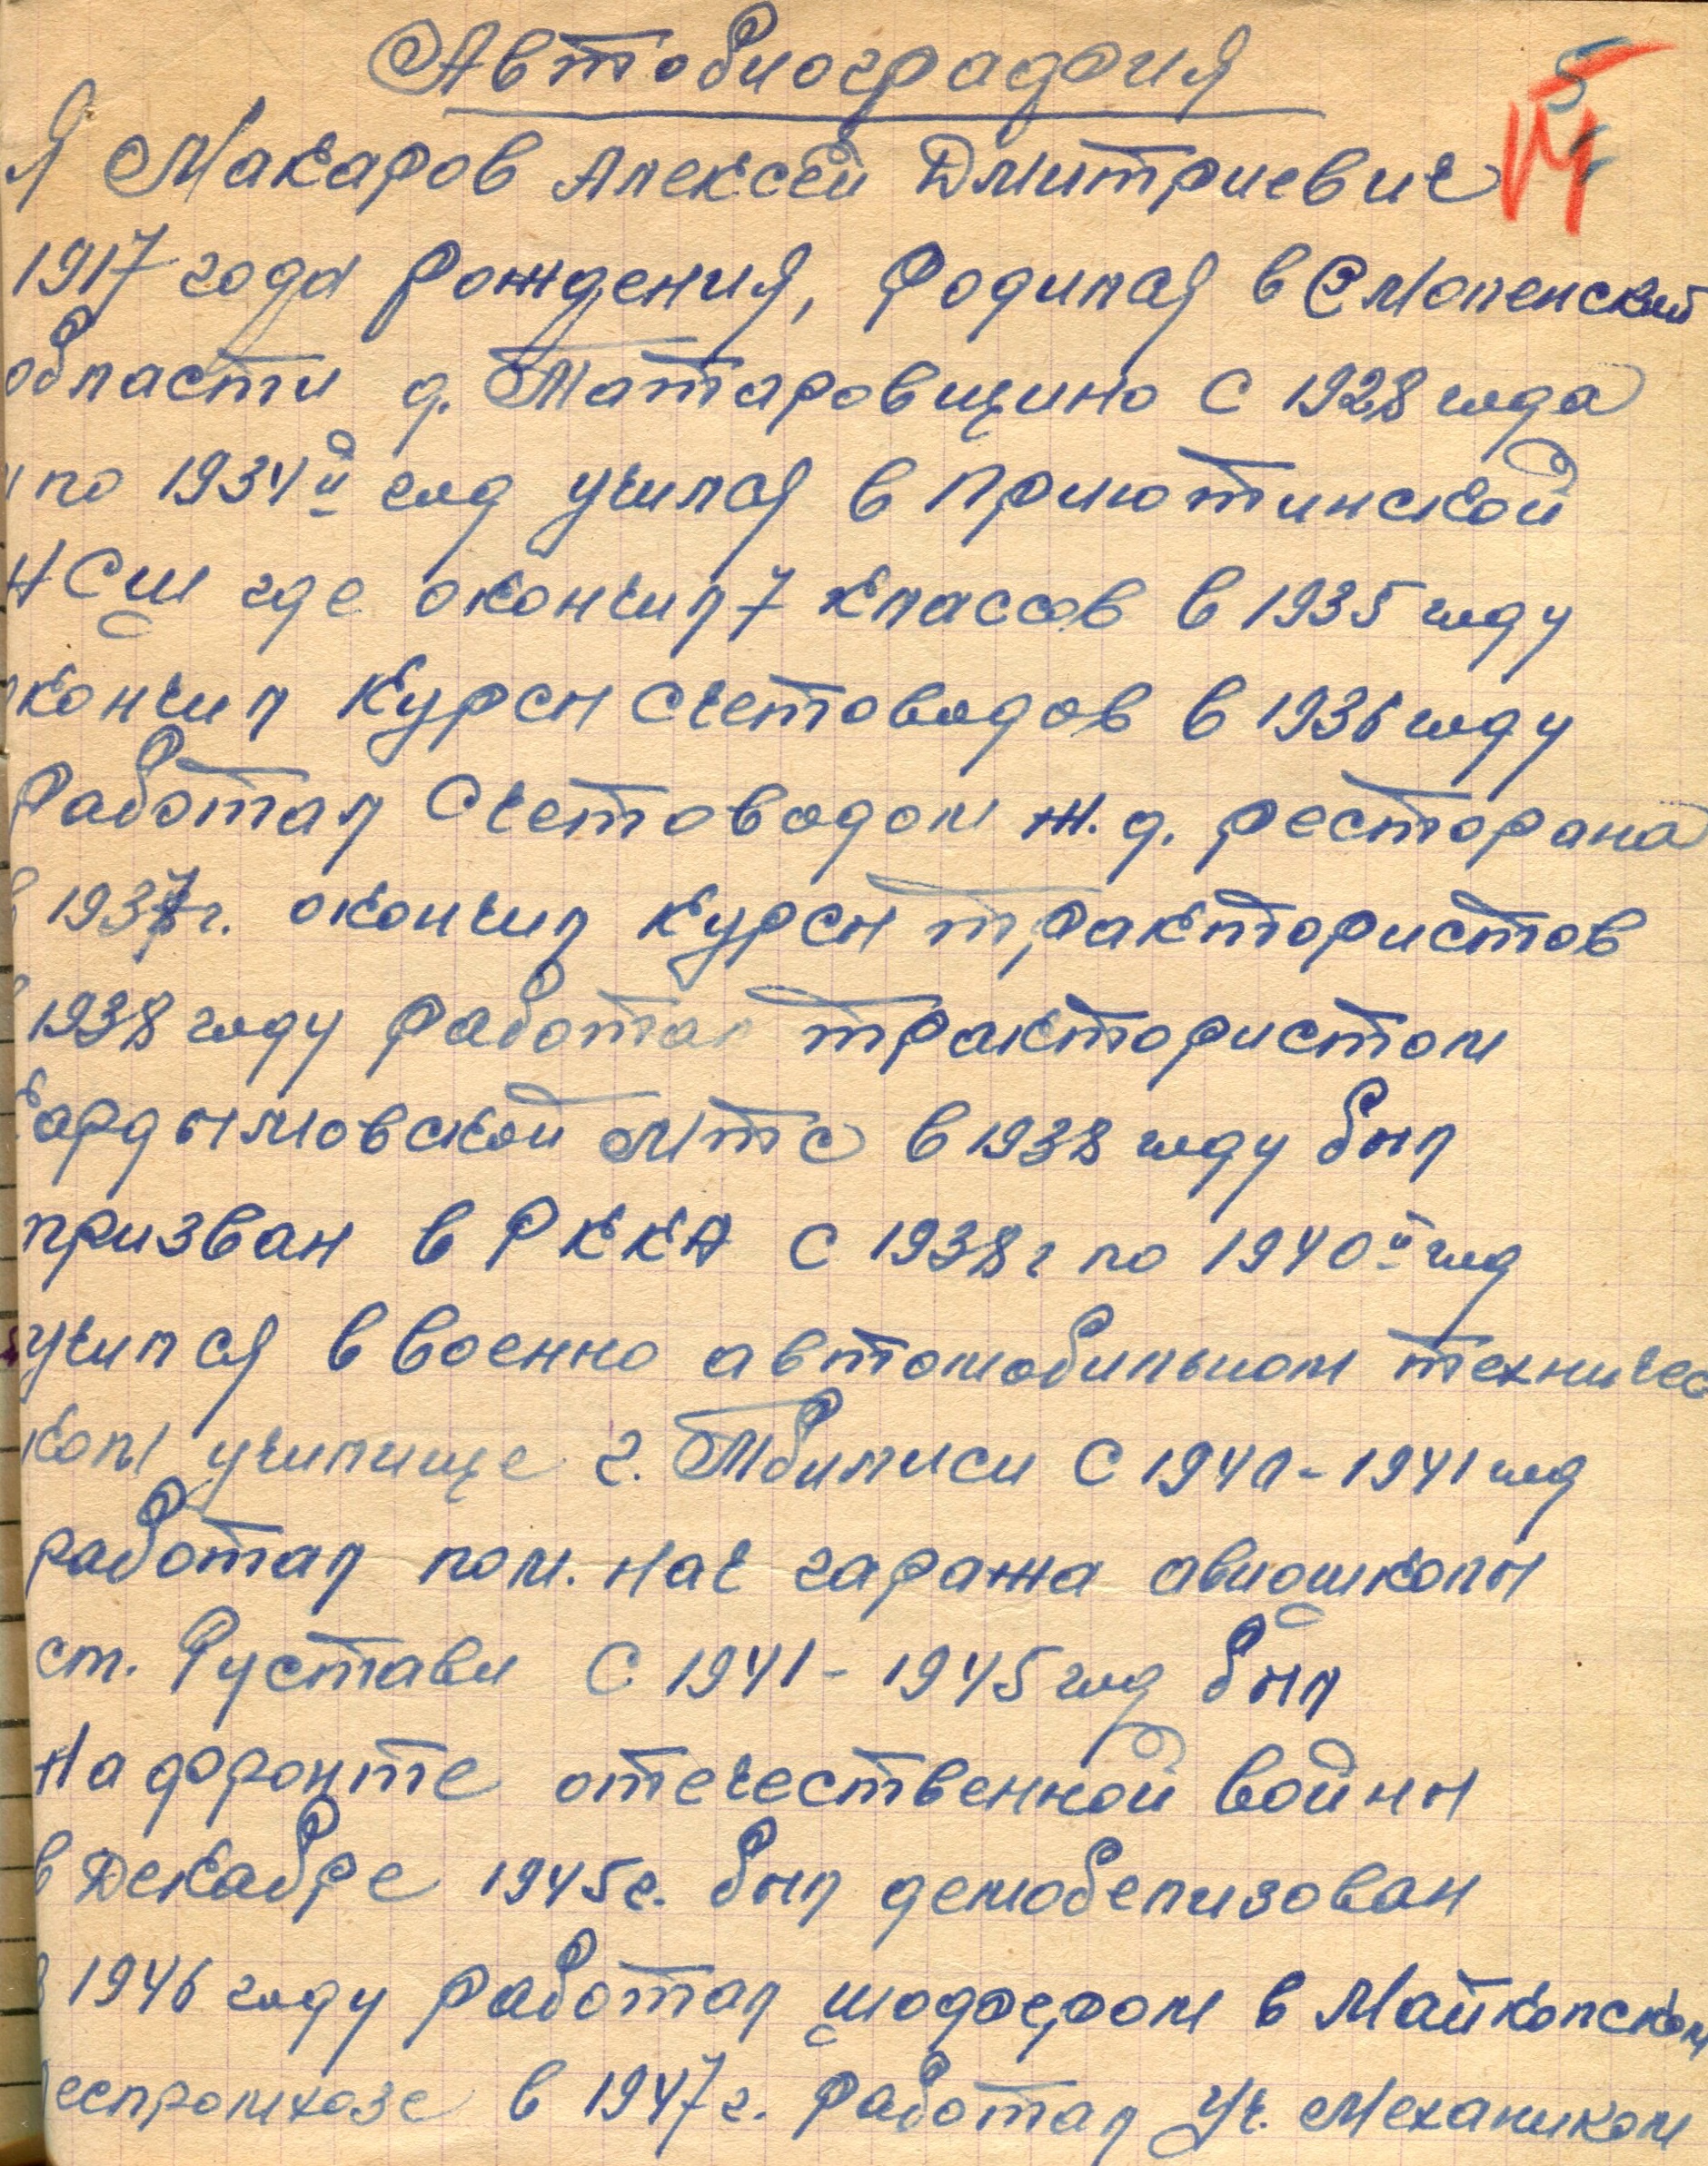 Автобиография
5
14
Я Макаров Алексей Дмитриевич
1917 года рождения, Родился в Смоленской
области д. Татаровщино С 1928 года
и по 1934й год учился в Приютинской
НСШ где окончил 7 классов в 1935 году
окончил курсы Счетоводов в 1936 году
Работал Счетоводом ж.д. ресторана
в 1937г. окончил курсы трактористов
в 1938 году работал трактористом
Кардымовской МТС в 1938 году был
призван в РККА С 1938г по 1940й год
учился в военно автомобильном техничес
ком училище г. Тбилиси С 1940-1941 год
работал пом. нач гаража авиошколы
ст. Рустави С 1941-1945 год был
На фронте отечественной войны
в Декабре 1945г. был демобелизован
в 1946 году работал шофером в Майкопском
леспромхозе в 1947г. Работал Уч. Механиком